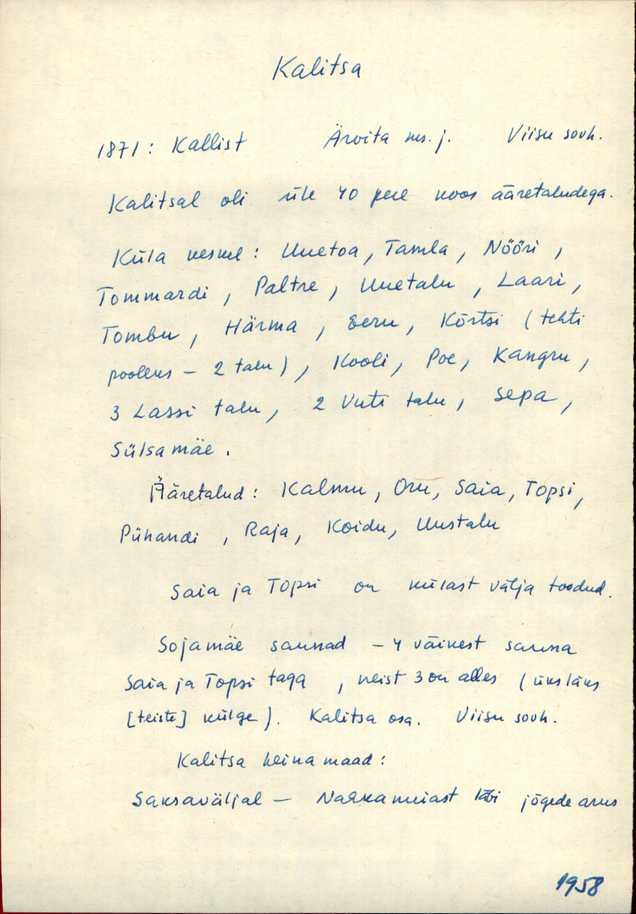 Kalitsa
1871: Kallist Ärvita ms. j. Viisu sovh.
Kalitsal oli üle 40 pere koos ääretaludega.
Küla keskel: Uuetoa, Tamla, Nööri,
Tommardi, Paltre, Uuetalu, Laari,
Tombu, Härma, Eeru, Kõrtsi (tehti
pooleks – 2 talu), Kooli, Poe, Kangru,
3 Lassi talu, 2 Vuti talu, Sepa,
Sülsamäe.
Ääretalud: Kalmu, Oru, Saia, Topsi,
Pühandi, Raja, Koidu, Uustalu
Saia ja Topsi on külast välja toodud.
Sojamäe saunad – 4 väikest sauna
Saia ja Topsi taga, neist 3 on alles (üks läks
[teiste] külge). Kalitsa osa. Viisu sovh.
Kalitsa heinamaad:
Saksaväljal – läbi jõgede
1958